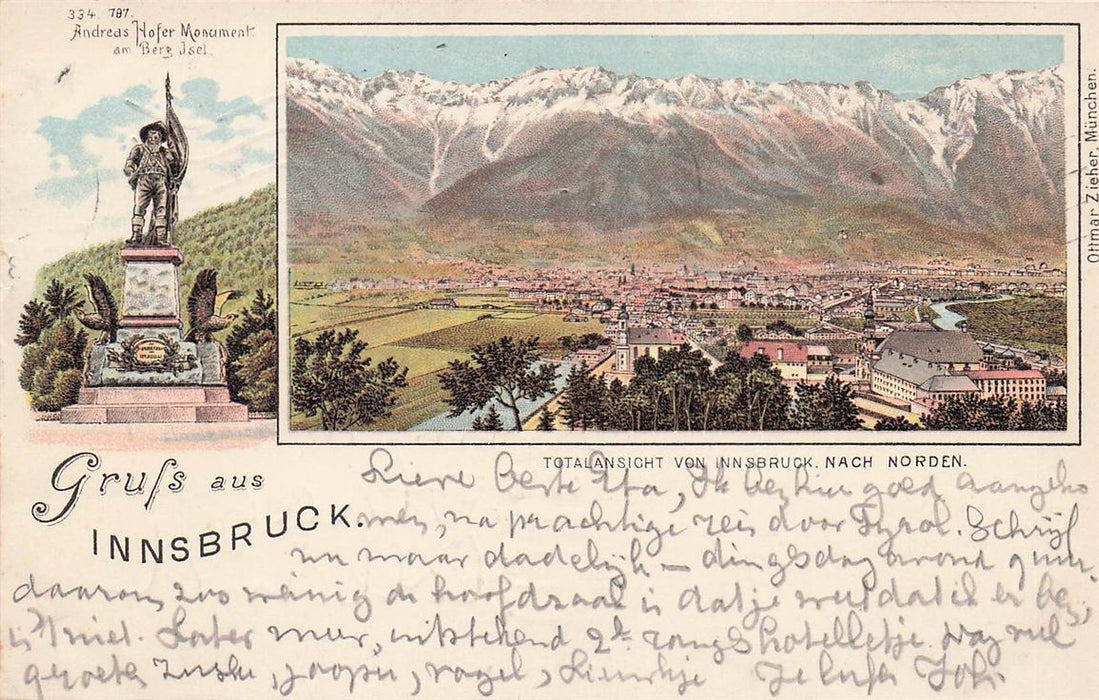 334. 787.
Andreas Hofer Monument
am Berg Isel.
Ottmar Zieher, München.
TOTALANSICHT VON INNSBRUCK. NACH NORDEN.
Gruſs aus
INNSBRUCK.
Lieve beste, Ik ben hier goed aangeko
men, na prachtige reis door Tyrol. Schrijf
nu maar dadelijk – dingsdag avond 9 uur.
daarom zoo weinig de hoofdzaak is dat je weet dat ik er ben,
is't niet. Later meer, uitstekend 2e rangs hotelletje. Dag veel
groeten Zuske, Joopie, vogel,